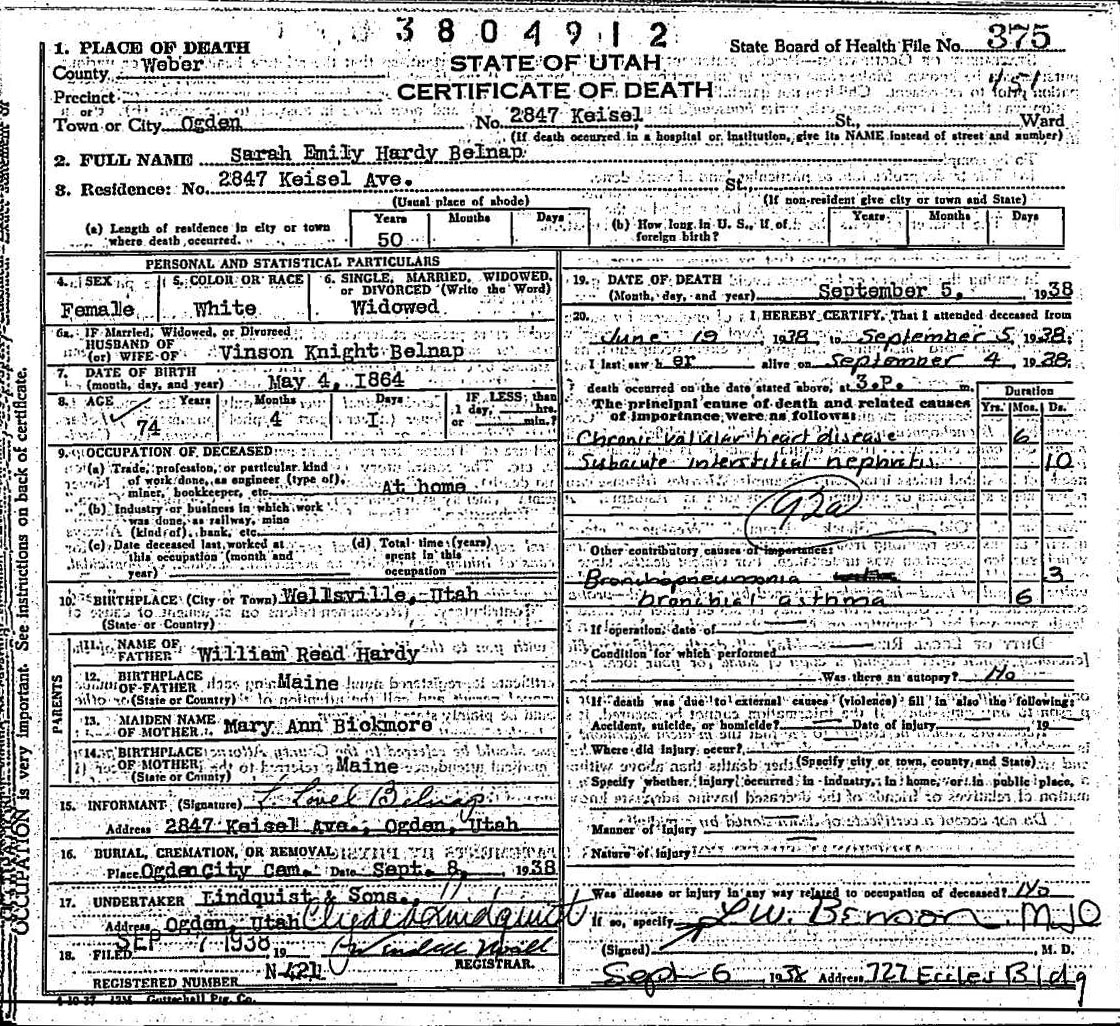 3804912
State Board of Health File No. 375
1. PLACE OF DEATH
County Weber
STATE OF UTAH
CERTIFICATE OF DEATH
Precinct
or
Town or City Ogden No. 2847 Keisel St., Ward
(If death occurred in a hospital or institution, give its NAME instead of street and number)
2. FULL NAME Sarah Emily Hardy Belnap
3. Residence: No. 2847 Keisel Ave. St.
(Usual place of abode) (If non-resident give city or town and State)
(a) Length of residence in city or town where death occurred. Years 50 Months Days
(b) How long in U. S., if of foreign birth? Years Months Days
PERSONAL AND STATISTICAL PARTICULARS
4. SEX 5. COLOR OR RACE 6. SINGLE, MARRIED, WIDOWED, or DIVORCED (Write the Word)
Female White Widowed
6a. IF Married, Widowed, or Divorced
HUSBAND OF
(or) WIFE OF Vinson Knight Belnap
7. DATE OF BIRTH
(month, day, and year) May 4, 1864
8. AGE Years Months Days IF LESS than 1 day, hrs. or min.?
74 4 1
9. OCCUPATION OF DECEASED
(a) Trade, profession, or particular kind
of work done, as engineer (type of),
miner, bookkeeper, etc. At home
(b) Industry or business in which work
was done, as railway, mine
(kind of), bank, etc.
(c) Date deceased last worked at
this occupation (month and
year)
(d) Total time (years)
spent in this
occupation
10. BIRTHPLACE (City or Town) Wellsville, Utah
(State or Country)
PARENTS
11. NAME OF
FATHER William Read Hardy
12. BIRTHPLACE
OF FATHER Maine
(State or County)
13. MAIDEN NAME
OF MOTHER Mary Ann Bickmore
14. BIRTHPLACE
OF MOTHER Maine
(State or County)
15. INFORMANT (Signature) Lovel Belnap
Address 2847 Keisel Ave., Ogden, Utah
16. BURIAL, CREMATION, OR REMOVAL
Place Ogden City Cem. Date Sept. 8, 1938
17. UNDERTAKER Lindquist & Sons.
Address Ogden, Utah Clyde Lindquist
18. FILED SEP 7 1938 19
REGISTRAR.
N 421
REGISTERED NUMBER
19. DATE OF DEATH
(Month, day, and year) September 5, 1938
20. I HEREBY CERTIFY, That I attended deceased from
June 19 1938 to September 5, 1938.
I last saw h er alive on September 4 1938.
death occurred on the date stated above, at 3.P. m.
The principal cause of death and related causes
of importance were as follows:
Duration
Yrs. Mos. Ds.
Chronic valular heart disease 6
Subacute interstitial nephritis 10
92a
Other contributory causes of importance:
Bronchopneumonia 3
bronchial asthma 6
If operation, date of
Condition for which performed
Was there an autopsy? No
If death was due to external causes (violence) fill in also the following:
Accident, suicide, or homicide? Date of injury 19
Where did injury occur?
(Specify city or town, county, and State)
Specify whether injury occurred in industry, in home, or in public place.
Manner of Injury
Nature of Injury
Was disease or injury in any way related to occupation of deceased? No
If so, specify
(Signed) L.W. Benson, MD M. D.
Sept 6 1938 Address 727 Eccles Bldg
OCCUPATION is very important. See instructions on back of certificate.
Gottschall Ptg. Co.